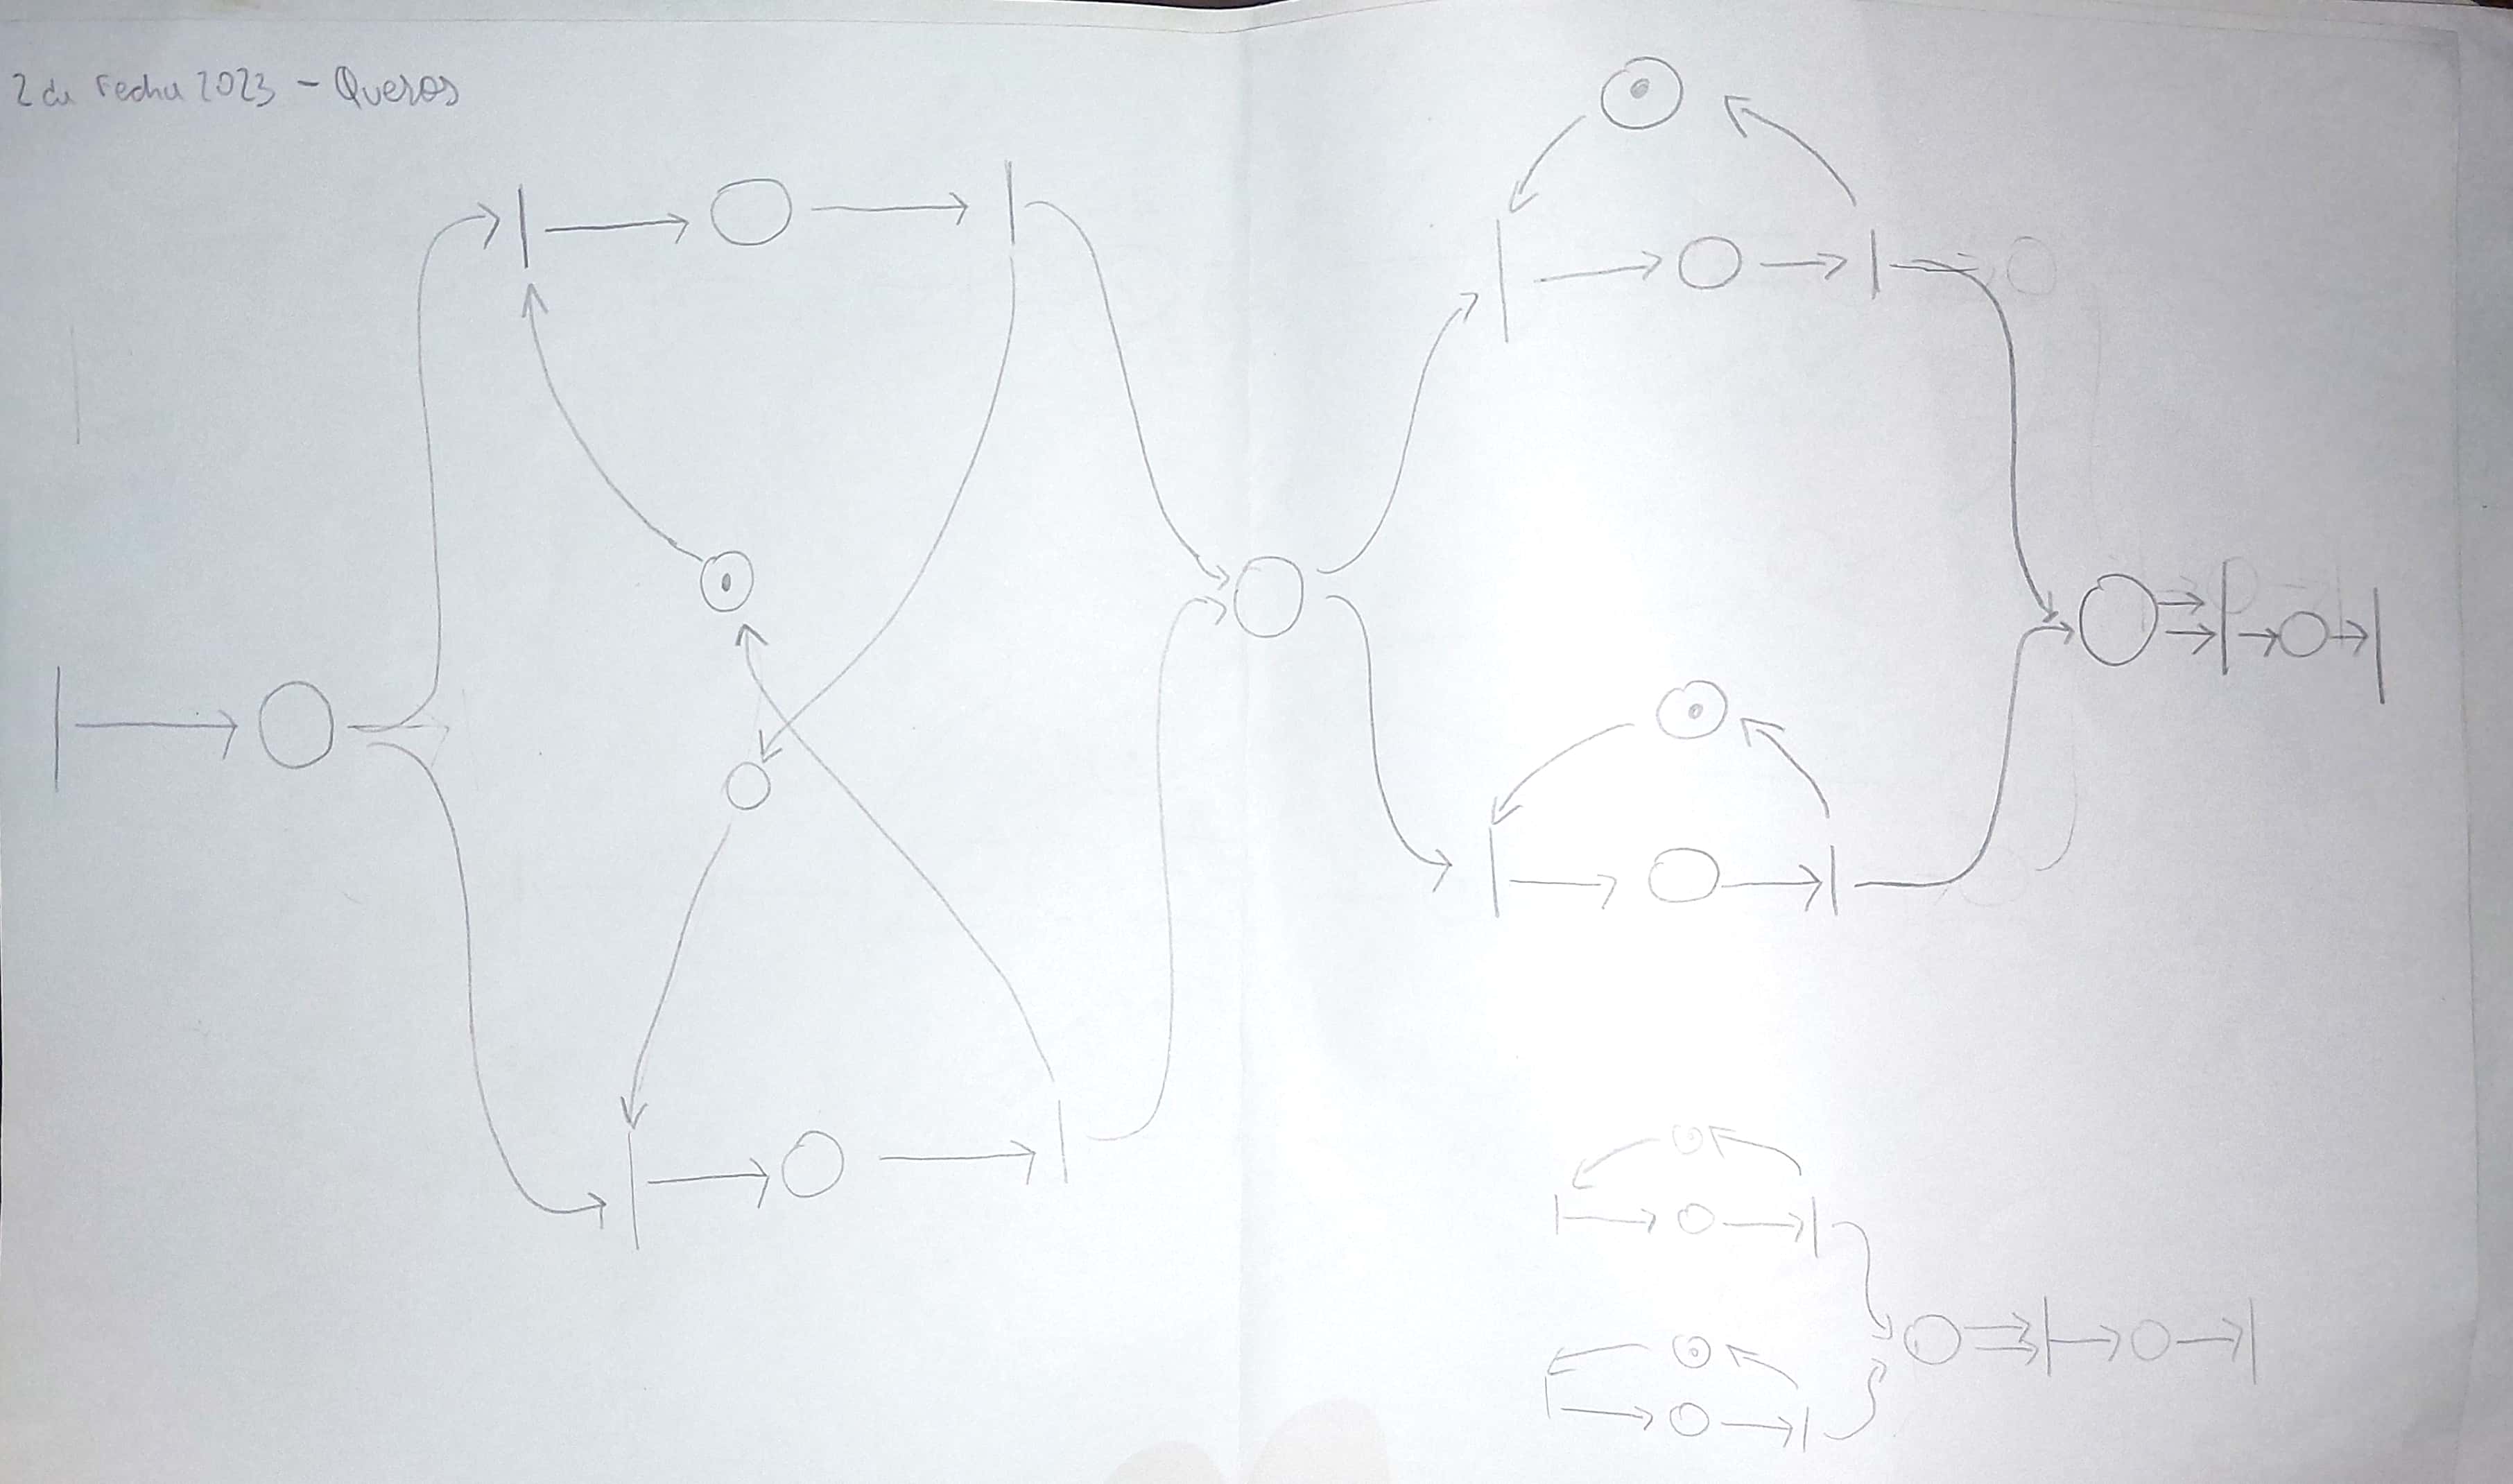 2da Fecha 2023 - Quesos